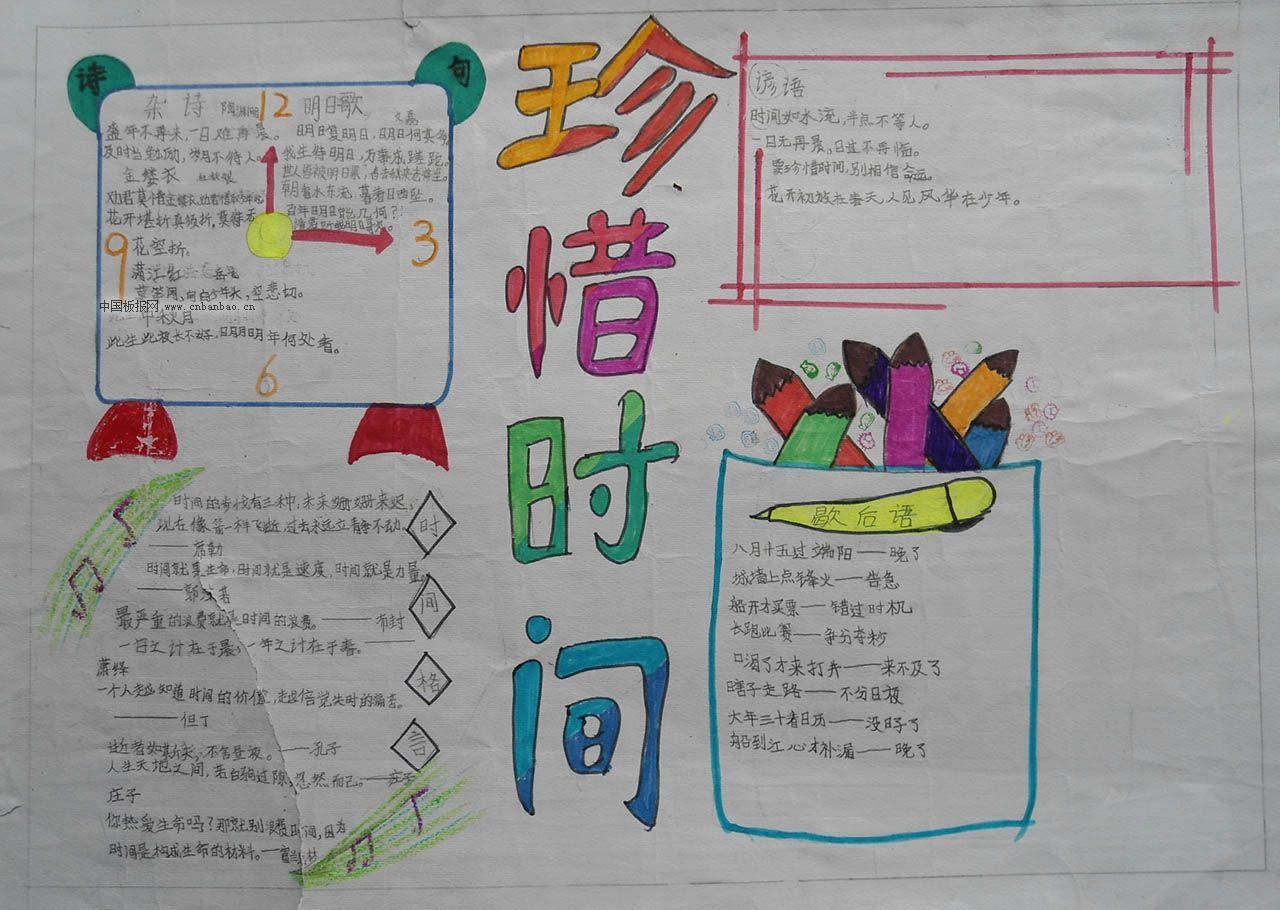 诗句
杂诗 陶渊明 12 明日歌 文嘉
盛年不再来,一日难再晨。
及时当勉励,岁月不待人。
金缕衣 杜秋娘
劝君莫惜金缕衣,劝君惜取少年时
花开堪折直须折,莫待无
花空折。
满江红 岳飞
莫等闲,白白少年头,空悲切。
中秋月
此生此夜长不好,明月明年何处看。
明日复明日,明日何其多
我生待明日,万事成蹉跎。
世人皆被明日累,
朝看水东流,暮看日西坠。
百年明日能几何?
9
3
6
中国板报网 www.cnbanbao.cn
珍惜时间
谚语
时间如水流,半点不等人。
一日无再晨,日过不再悟。
要珍惜时间,别相信命运。
花开初放在春天,人见风华在少年。
时间格言
时间的步伐有三种:未来姗姗来迟,
现在像箭一样飞逝,过去永远立静不动。
——席勒
时间就是生命,时间就是速度,时间就是力量。
——郭沫若
最严重的浪费就是时间的浪费。——布封
一日之计在于晨,一年之计在于春。——
萧绎
一个人越知道时间的价值,越倍觉失时的痛苦。
——但丁
逝者如斯夫,不舍昼夜。——孔子
人生天地之间,若白驹过隙,忽然而已。——庄子
庄子
你热爱生命吗?那就别浪费时间,因为
时间是构成生命的材料。——富兰克林
歇后语
八月十五过端阳——晚了
城墙上点锋火——告急
船开才买票——错过时机
长跑比赛——争分夺秒
口渴了才来打井——来不及了
瞎子走路——不分日夜
大年三十看日历——没日子了
船到江心才补漏——晚了